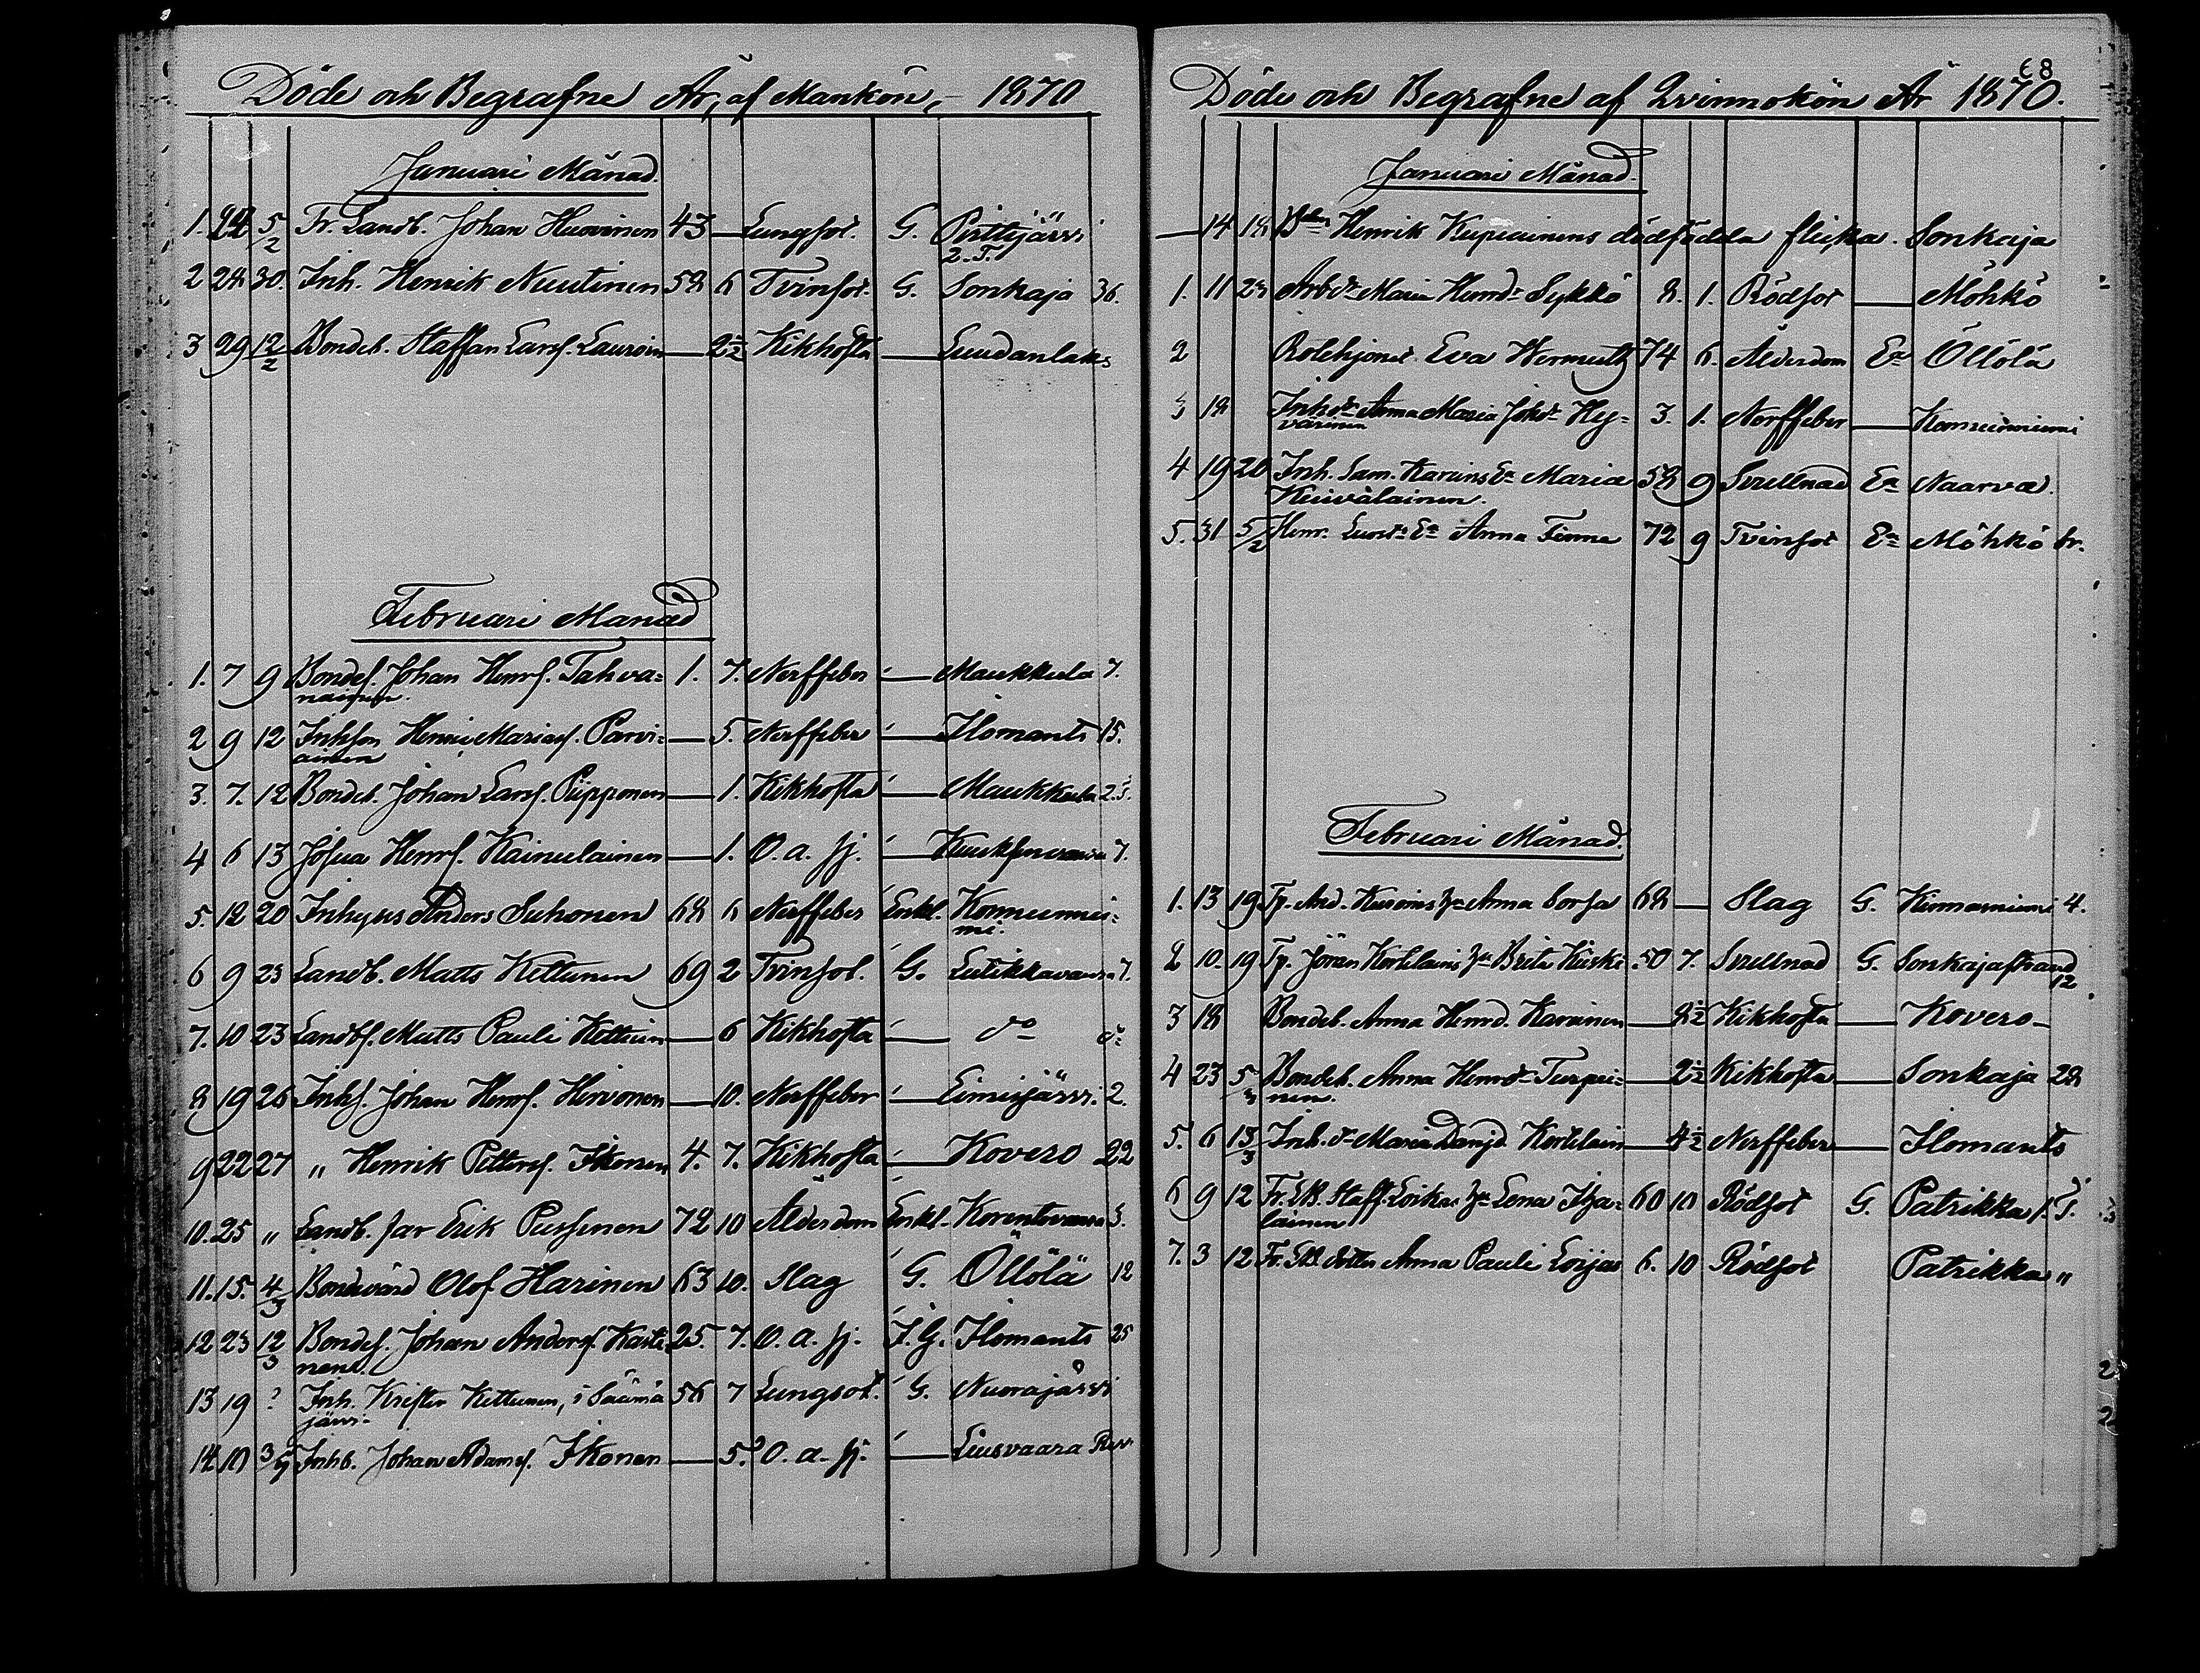 Döde och Begrafne År, af Mankön, – 1870
Januari Månad.
1. 5/2 Fr. Landb. Johan Huovinen 43 — Lungsot. G. Pirttijärvi 2. T.
2 28 30. Inh. Henrik Nuutinen 58 6 Tvinsot. G. Sonkaja 36.
3 29 12/2 Bondeb. Staffan Larsf. Lauroin — 2½ Kikhosta — Luudanlaks
Februari Månad
1. 7 9 Bondef. Johan Henrf. Tahva=
nainen. 1. 7. Nerffeber — Maukkula 7.
2 9 12 Inhson Henric Mariasf. Parvi=
ainen — 5. Nerffeber — Ilomants 15.
3. 7. 12 Bondeb. Johan Larsf. Piipponen — 1. Kikhosta — Maukkula 25.
4 6 13 Josua Henrf. Kainulainen — 1. O. a. sj. — 7.
5. 12 20 Inhyses Anders Suhonen 68 6 Nerffeber Enkl. Konnunnie=
mi.
6 9 23 Landb. Matts Kettunen 69 2 Tvinsot. G. Lutikkavaara 7.
7. 10 23 Landbf. Matts Pauli Kettuin — 6 Kikhosta — do do
8 19 26 Inhf. Johan Henrf. Hirvonen — 10. Nerffeber — Eimisjärvi. 2.
9 22 27 „ Henrik Pettersf. Ikonen 4. 7. Kikhosta — Kovero 22
10. 25 „ Landb. far Erik Pussinen 72 10 Ålderdom Enkl. Korentovaara 3.
11. 15. 4/3 Bondevärd Olof Harinen 63 10. Slag G. Öllölä 12
12 23 12/3 Bondef. Johan Andersf. Kasti=
nen. 25. 7. O. a. sj. I. G. Ilomants 25
13 19 ? Inh. Krister Kettunen, i Säämä
järvi. 56 7 Lungsot. G. Nuorajärvi
14 10 3/4 Inhb. Johan Adamsf. Ikonen — 5. O. a. sj. — Liusvaara Rev
68
Döde och Begrafne af Qvinnokön År 1870.
Januari Månad.
— 14 18 Bden Henrik Kupiainens dödfödda flicka. Sonkaja
1. 11 23 Arbdr Maria Henrdr Sykkö 8. 1. Rödsot — Möhkö
2 Rotehjonet Eva Hermuth 74 6. Ålderdom Ea Öllölä
3 18 Inhdr Anna Maria Johdr Hy=
värinen 3. 1. Nerffeber — Konnunniemi
4 19 20 Inh. Sam. Karains Ea Maria
Kuivalainen. 58 9 Svullnad Ea Naarva.
5. 31 5/2 Henr. Ea Anna Finne 72 9 Tvinsot Ea Möhkö br.
Februari Månad.
1. 13 19 Tp. And. Hu Anna Borsa 68 — Slag G. Kinnasniemi 4.
2 10. 19 Tp. Jöran Kortelains Hu Brita Kiiski 50 7. Svullnad G. Sonkajastrand
12
3 18 Bondeb. Anna Henrd. Karainen — 8½ Kikhosta — Kovero –
4 23 5/3 Bondeb. Anna Henrdr Turpei=
nen. — 2½ Kikhosta — Sonkaja 28
5. 6 13/3 Inh. dr Maria Danjd Kortelain — 4½ Nerffeber — Ilomants
6 9 12 Fr. LB. Staff. Loikas Hu Lena Itkä=
läinen 60 10 Rödsot G. Patrikka 1. T.
7. 3 12 Fr. LB. dotter Anna Pauli Loijas 6. 10 Rödsot Patrikka „